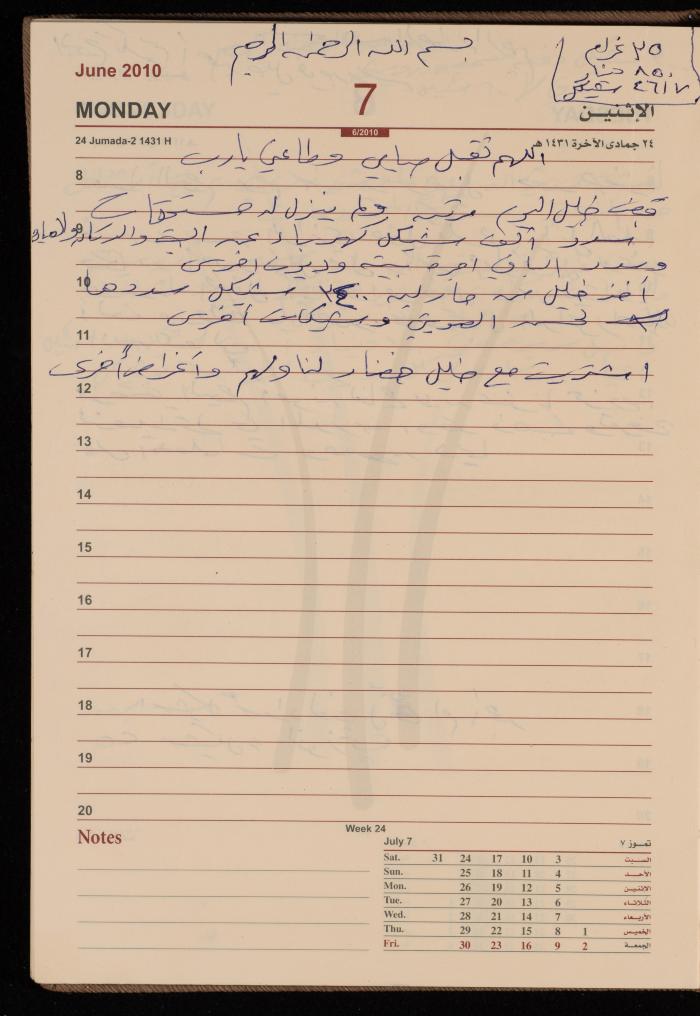 بسم الله الرحمن الرحيم
٢٥ غرام
٨٥٠ دينار
٤٦١٧ شيكل
June 2010
MONDAY
7
الإثنين
6/2010
24 Jumada-2 1431 H
٢٤ جمادى الآخرة ١٤٣١ هـ
اللهم تقبل صيامي وطاعتي يا رب
8
قبض خليل اليوم مرتبه ولم ينزل له مستحقات
9
سدد ألف شيكل كهرباء عن البيت والدكان
وسدد الباقي اجرة بيته وديون اخرى
10
أخذ خليل من شيكل سددها
وشيكات أخرى
11
اشتريت مع خليل خضار لنا ولهم وأغراض أخرى
12
13
14
15
16
17
18
19
20
Notes
Week 24
July 7
تموز ٧
Sat. 31 24 17 10 3 السبت
Sun. 25 18 11 4 الأحد
Mon. 26 19 12 5 الاثنين
Tue. 27 20 13 6 الثلاثاء
Wed. 28 21 14 7 الأربعاء
Thu. 29 22 15 8 1 الخميس
Fri. 30 23 16 9 2 الجمعة